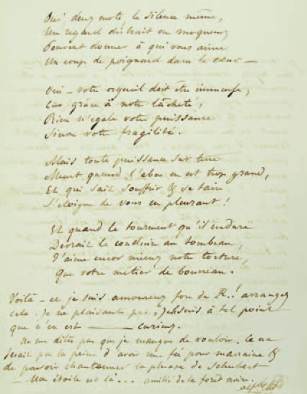 Oui deux mots, le silence même,
Un regard distrait ou moqueur,
Peuvent donner à qui vous aime
Un coup de poignard dans le cœur —
Oui — votre orgueil doit être immense,
Car grâce à notre lâcheté,
Rien n'égale votre puissance
Sinon votre fragilité.
Mais toute puissance sur terre
Meurt quand l'abus en est trop grand,
Et qui sait souffrir & se taire
S'éloigne de vous en pleurant !
Et quand le tourment qu'il endure
Devrait le conduire au tombeau,
J'aime encor mieux notre torture,
Que votre métier de bourreau.
Voilà — je suis amoureux fou de R..! arrangez
cela. Je ne plaisante pas, j'en suis à tel point
que c'en est curieux.
Ne me dites pas que je manque de vouloir, ce ne
serait pas la peine d'avoir une fée pour marraine &
de pouvoir chantonner la phrase de Schubert
Mon étoile est là ... amitié de la forêt noire.